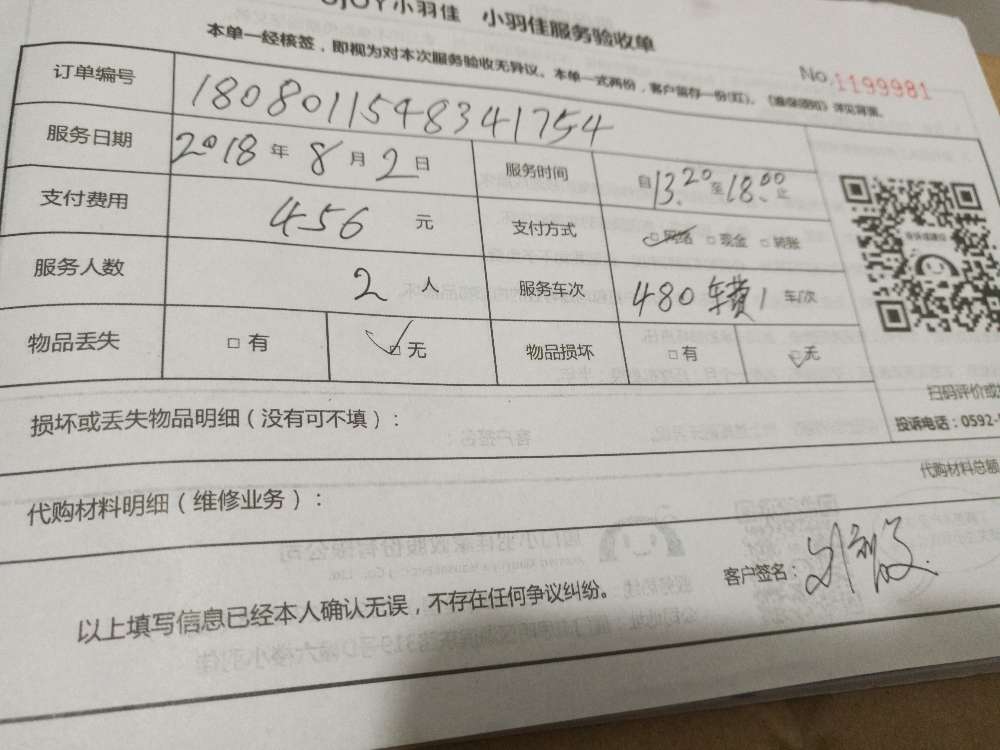 小羽佳 小羽佳服务验收单
本单一经核签，即视为对本次服务验收无异议。本单一式两份，客户留存一份(红)。《维保须知》详见背面。
No.1199981
订单编号 1808011548341754
服务日期 2018 年 8 月 2 日 服务时间 自 13.20 至 18.00 止
支付费用 456 元 支付方式 □网络 □现金 □转账
服务人数 2 人 服务车次 480 1 车/次
物品丢失 □有 □无 物品损坏 □有 □无
扫码评价或
投诉电话：0592-
损坏或丢失物品明细（没有可不填）：
代购材料明细（维修业务）： 代购材料总额
客户签名：
以上填写信息已经本人确认无误，不存在任何争议纠纷。